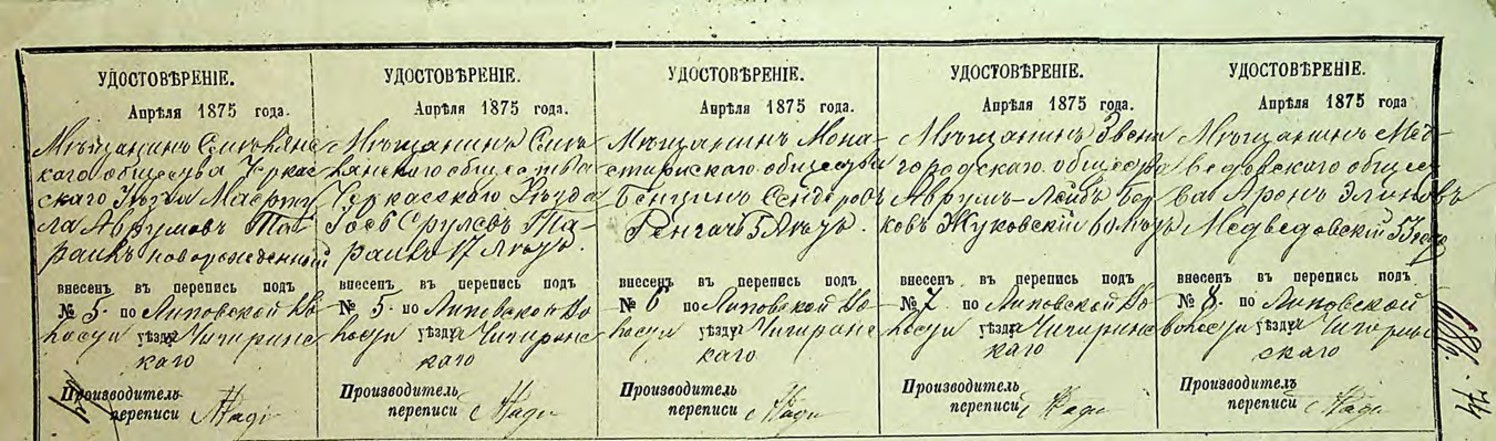 УДОСТОВѢРЕНІЕ.
Апрѣля 1875 года.
Мѣщанинъ
каго общества Черкас
скаго Уѣзда
Аврумовъ
новорожденный
внесенъ въ перепись подъ
№ 5. по Липовской во
лости уѣзда Чигиринс
каго
Производитель
переписи
УДОСТОВѢРЕНІЕ.
Апрѣля 1875 года.
Мѣщанинъ
лянского общества
Черкасскаго Уѣзда
Срулевъ Та-
17 лѣтъ.
внесенъ въ перепись подъ
№ 5. по Липовской во
лости уѣзда Чигиринс
каго
Производитель
переписи
УДОСТОВѢРЕНІЕ.
Апрѣля 1875 года.
Мѣщанинъ Мона-
стырискаго общества
Бенцинъ Сендеровъ
5 лѣтъ.
внесенъ въ перепись подъ
№ 6 по Липовской во
лости уѣзда Чигиринс
каго
Производитель
переписи
УДОСТОВѢРЕНІЕ.
Апрѣля 1875 года.
Мѣщанинъ Звени
городскаго общества
Аврумъ-Лейбъ Бер
ковъ Жуковскій 60 лѣтъ
внесенъ въ перепись подъ
№ 7 по Липовской во
лости уѣзда Чигиринс
каго
Производитель
переписи
УДОСТОВѢРЕНІЕ.
Апрѣля 1875 года
Мѣщанинъ Мед-
ведовского общест
ва Аронъ
Медведовскій
внесенъ въ перепись подъ
№ 8. по Липовской
волости уѣзда Чигиринс
скаго
Производитель
переписи